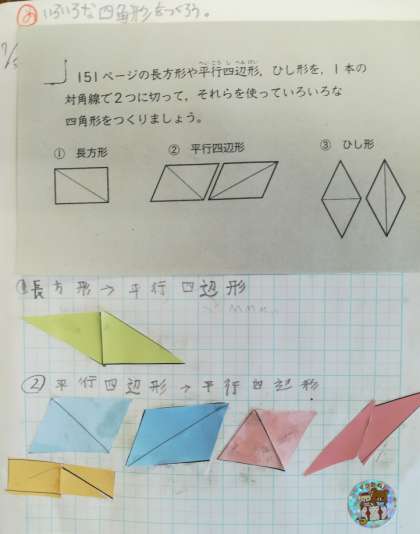 め いろいろな四角形をつくろう。
151ページの長方形や平行四辺形，ひし形を，1本の
対角線で2つに切って，それらを使っていろいろな
四角形をつくりましょう。
① 長方形 ② 平行四辺形 ③ ひし形
①長方形→平行四辺形
②平行四辺形→平行四辺形